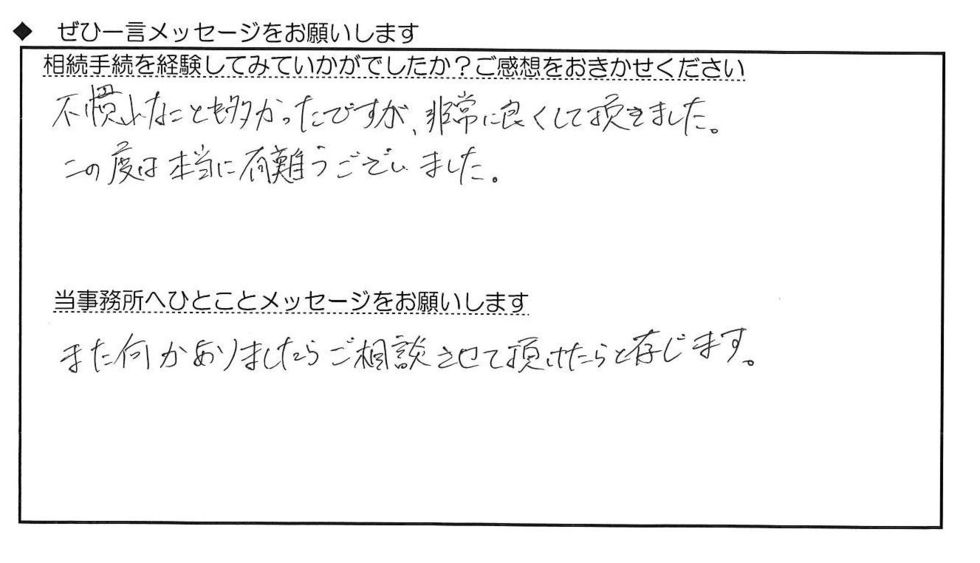 ◆ ぜひ一言メッセージをお願いします
相続手続を経験してみていかがでしたか？ご感想をおきかせください
不慣れなことも多かったですが、非常に良くして頂きました。
この度は本当に有難うございました。
当事務所へひとことメッセージをお願いします
また何かありましたらご相談させて頂けたらと存じます。